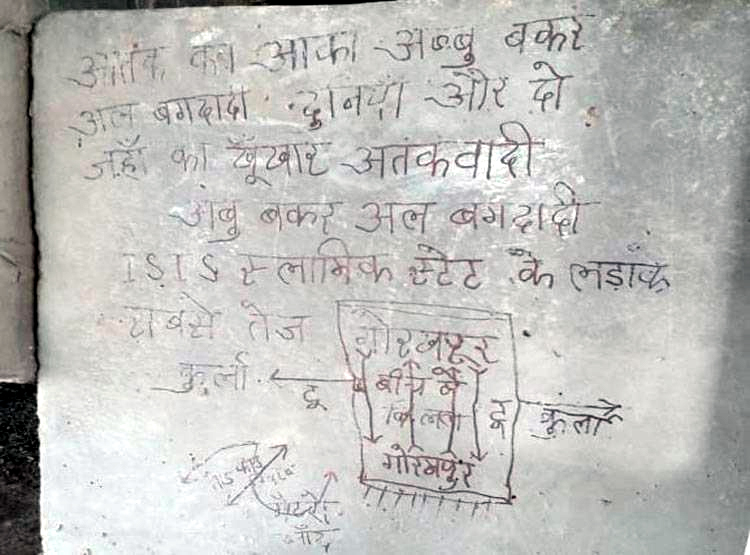 आतंक का आका अब्बु बकर
अल बगदादी दुनिया और दो
जहाँ का खूँखार अतंकवादी
अबु बकर अल बगदादी
ISIS स्लामिक स्टेट के लड़ाके
सबसे तेज
गोरखपुर
कुर्ला
टू
बीच बै
टू
कुर्ला
गोरखपुर